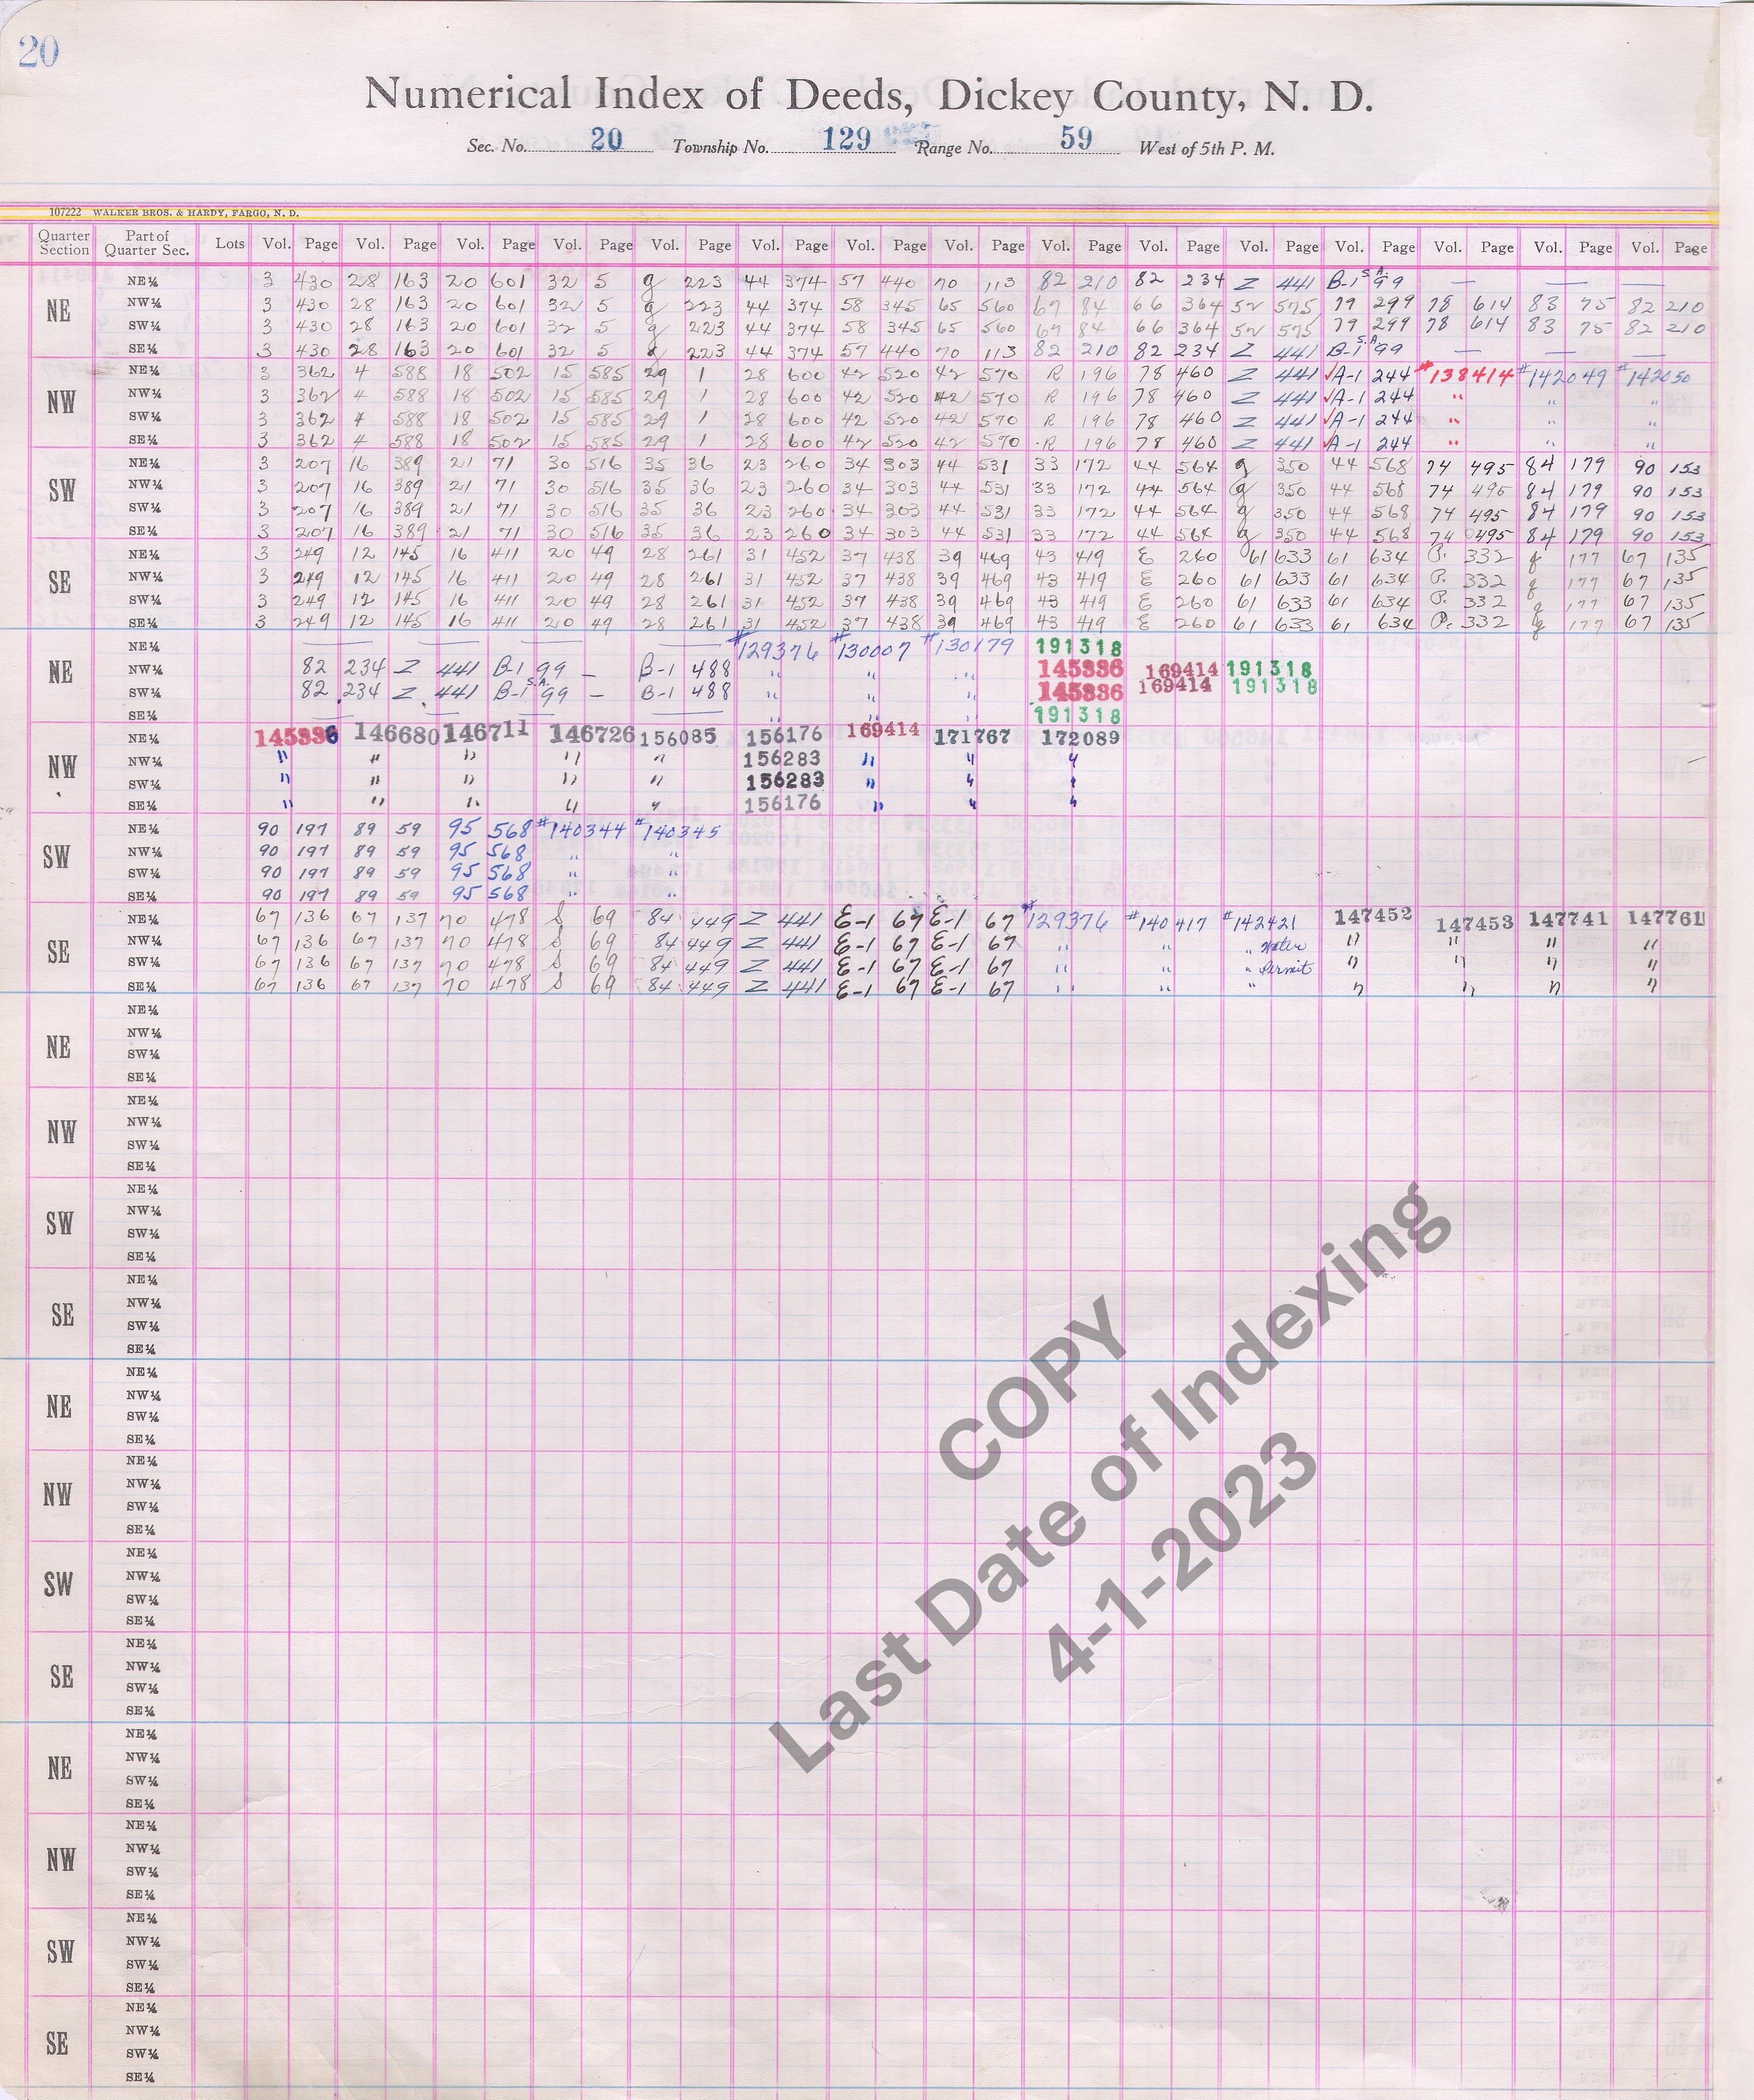 20
Numerical Index of Deeds, Dickey County, N. D.
Sec. No. 20 Township No. 129 Range No. 59 West of 5th P. M.
107222 WALKER BROS. & HARDY, FARGO, N. D.
Quarter Section Part of Quarter Sec. Lots Vol. Page Vol. Page Vol. Page Vol. Page Vol. Page Vol. Page Vol. Page Vol. Page Vol. Page Vol. Page Vol. Page Vol. Page Vol. Page Vol. Page Vol. Page
NE
NE¼ 3 430 28 163 20 601 32 5 g 223 44 374 57 440 70 113 82 210 82 234 Z 441 B-1 S.A. 99 — — —
NW¼ 3 430 28 163 20 601 32 5 g 223 44 374 58 345 65 560 67 84 66 364 52 575 79 299 78 614 83 75 82 210
SW¼ 3 430 28 163 20 601 32 5 g 223 44 374 58 345 65 560 67 84 66 364 52 575 79 299 78 614 83 75 82 210
SE¼ 3 430 28 163 20 601 32 5 g 223 44 374 57 440 70 113 82 210 82 234 Z 441 B-1 S.A. 99 — — —
NW
NE¼ 3 362 4 588 18 502 15 585 29 1 28 600 42 520 42 570 R 196 78 460 Z 441 √A-1 244 #138414 #142049 #142050
NW¼ 3 362 4 588 18 502 15 585 29 1 28 600 42 520 42 570 R 196 78 460 Z 441 √A-1 244 " " "
SW¼ 3 362 4 588 18 502 15 585 29 1 28 600 42 520 42 570 R 196 78 460 Z 441 √A-1 244 " " "
SE¼ 3 362 4 588 18 502 15 585 29 1 28 600 42 520 42 570 R 196 78 460 Z 441 √A-1 244 " " "
SW
NE¼ 3 207 16 389 21 71 30 516 35 36 23 260 34 303 44 531 33 172 44 564 g 350 44 568 74 495 84 179 90 153
NW¼ 3 207 16 389 21 71 30 516 35 36 23 260 34 303 44 531 33 172 44 564 g 350 44 568 74 495 84 179 90 153
SW¼ 3 207 16 389 21 71 30 516 35 36 23 260 34 303 44 531 33 172 44 564 g 350 44 568 74 495 84 179 90 153
SE¼ 3 207 16 389 21 71 30 516 35 36 23 260 34 303 44 531 33 172 44 564 g 350 44 568 74 495 84 179 90 153
SE
NE¼ 3 249 12 145 16 411 20 49 28 261 31 452 37 438 39 469 43 419 E 260 61 633 61 634 P. 332 g 177 67 135
NW¼ 3 249 12 145 16 411 20 49 28 261 31 452 37 438 39 469 43 419 E 260 61 633 61 634 P. 332 g 177 67 135
SW¼ 3 249 12 145 16 411 20 49 28 261 31 452 37 438 39 469 43 419 E 260 61 633 61 634 P. 332 g 177 67 135
SE¼ 3 249 12 145 16 411 20 49 28 261 31 452 37 438 39 469 43 419 E 260 61 633 61 634 P. 332 g 177 67 135
NE
NE¼ — — — — #129376 #130007 #130179 191318
NW¼ 82 234 Z 441 B-1 99 — B-1 488 " " " 145336 169414 191318
SW¼ 82 234 Z 441 B-1 S.A. 99 — B-1 488 " " " 145336 169414 191318
SE¼ — — — — " " " 191318
NW
NE¼ 145336 146680 146711 146726 156085 156176 169414 171767 172089
NW¼ " " " " " 156283 " " "
SW¼ " " " " " 156283 " " "
SE¼ " " " " " 156176 " " "
SW
NE¼ 90 197 89 59 95 568 #140344 #140345
NW¼ 90 197 89 59 95 568 " "
SW¼ 90 197 89 59 95 568 " "
SE¼ 90 197 89 59 95 568 " "
SE
NE¼ 67 136 67 137 70 478 S 69 84 449 Z 441 E-1 67 E-1 67 #129376 #140417 #142421 147452 147453 147741 147761
NW¼ 67 136 67 137 70 478 S 69 84 449 Z 441 E-1 67 E-1 67 " " " Water " " " "
SW¼ 67 136 67 137 70 478 S 69 84 449 Z 441 E-1 67 E-1 67 " " " Permit " " " "
SE¼ 67 136 67 137 70 478 S 69 84 449 Z 441 E-1 67 E-1 67 " " " " " " "
NE
NE¼
NW¼
SW¼
SE¼
NW
NE¼
NW¼
SW¼
SE¼
SW
NE¼
NW¼
SW¼
SE¼
SE
NE¼
NW¼
SW¼
SE¼
NE
NE¼
NW¼
SW¼
SE¼
NW
NE¼
NW¼
SW¼
SE¼
SW
NE¼
NW¼
SW¼
SE¼
SE
NE¼
NW¼
SW¼
SE¼
NE
NE¼
NW¼
SW¼
SE¼
NW
NE¼
NW¼
SW¼
SE¼
SW
NE¼
NW¼
SW¼
SE¼
SE
NE¼
NW¼
SW¼
SE¼
COPY
Last Date of Indexing
4-1-2023